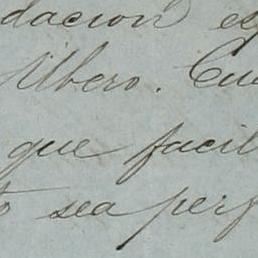 dacion es
Ubero. Cu
que facil
sea perf